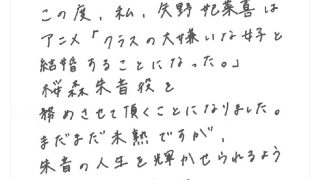 この度、私、矢野妃菜喜は
アニメ「クラスの大嫌いな女子と
結婚することになった。」
桜森朱音役を
務めさせて頂くことになりました。
まだまだ未熟ですが、
朱音の人生を輝かせられるよう